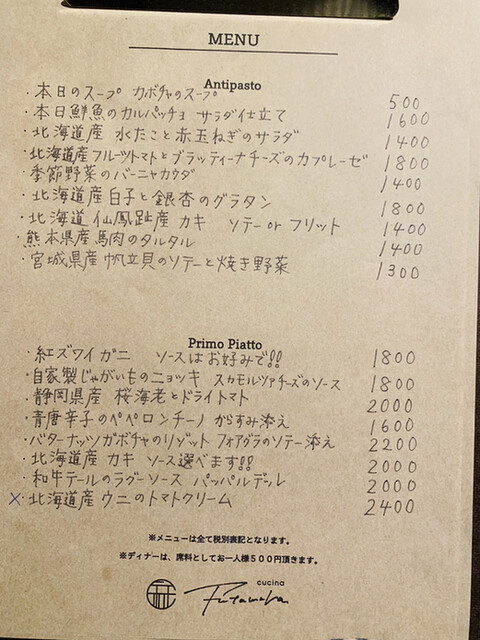 MENU
Antipasto
・本日のスープ カボチャのスープ 500
・本日鮮魚のカルパッチョ サラダ仕立て 1600
・北海道産 水たこと赤玉ねぎのサラダ 1400
・北海道産フルーツトマトとブラッティーナチーズのカプレーゼ 1800
・季節野菜のバーニャカウダ 1400
・北海道産白子と銀杏のグラタン 1800
・北海道 仙鳳趾産 カキ ソテー or フリット 1400
・熊本県産馬肉のタルタル 1400
・宮城県産帆立貝のソテーと焼き野菜 1300
Primo Piatto
・紅ズワイガニ ソースはお好みで!! 1800
・自家製じゃがいものニョッキ スカモルツァチーズのソース 1800
・静岡県産 桜海老とドライトマト 2000
・青唐辛子のペペロンチーノ からすみ添え 1600
・バターナッツカボチャのリゾット フォアグラのソテー添え 2200
・北海道産 カキ ソース選べます!! 2000
・和牛テールのラグーソース パッパルデル 2000
×・北海道産 ウニのトマトクリーム 2400
※メニューは全て税別表記となります。
※ディナーは、席料としてお一人様500円頂きます。
cucina